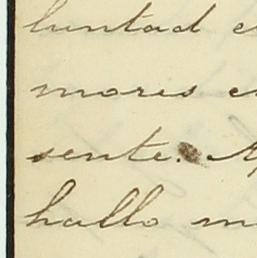 luntad
mores
sente.
hallo